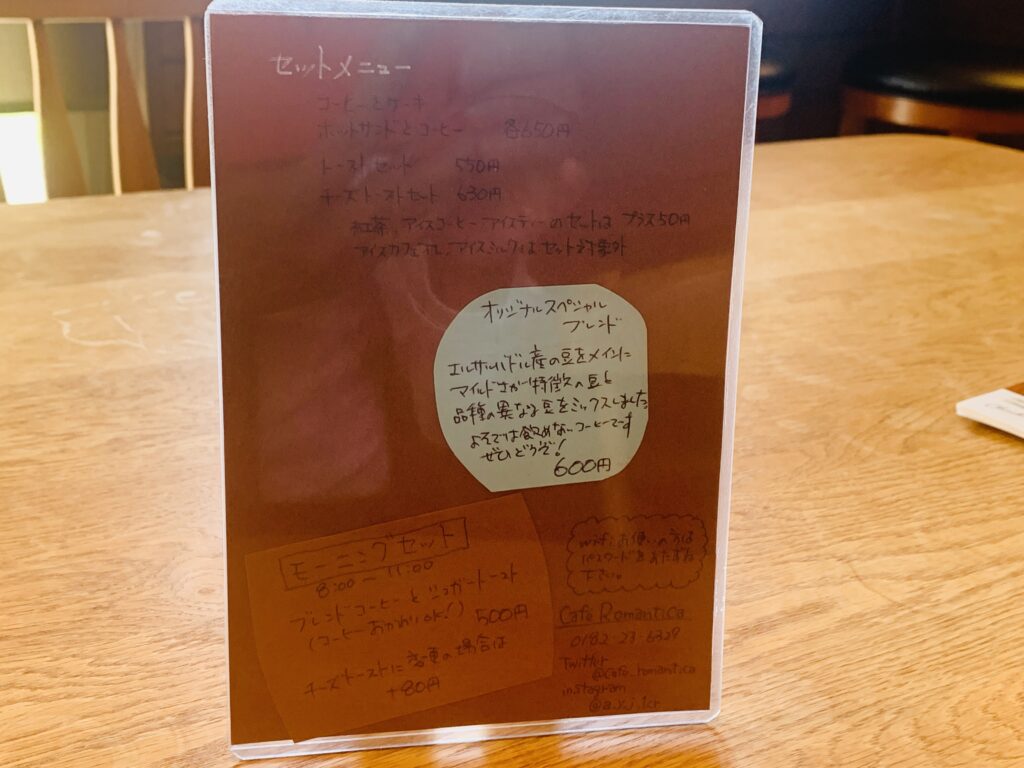 セットメニュー
コーヒーとケーキ
ホットサンドとコーヒー 各650円
トーストセット 550円
チーズトーストセット 630円
紅茶、アイスコーヒー、アイスティーのセットは プラス50円
アイスカフェオレ、アイスミルクはセット対象外
オリジナルスペシャル
ブレンド
エルサルバドル産の豆をメインに
マイルドさが特徴の豆と
品種の異なる豆をミックスしました
よそでは飲めないコーヒーです
ぜひどうぞ!
600円
モーニングセット
8:00 ー 11:00
ブレンドコーヒーとシュガートースト
(コーヒーおかわりOK!) 500円
チーズトーストに変更の場合は
+80円
wifiお使いの方は
パスワードをおたずね
下さい。
Cafe Romantica
0182-23-6327
Twitter
@cafe_romantica
instagram